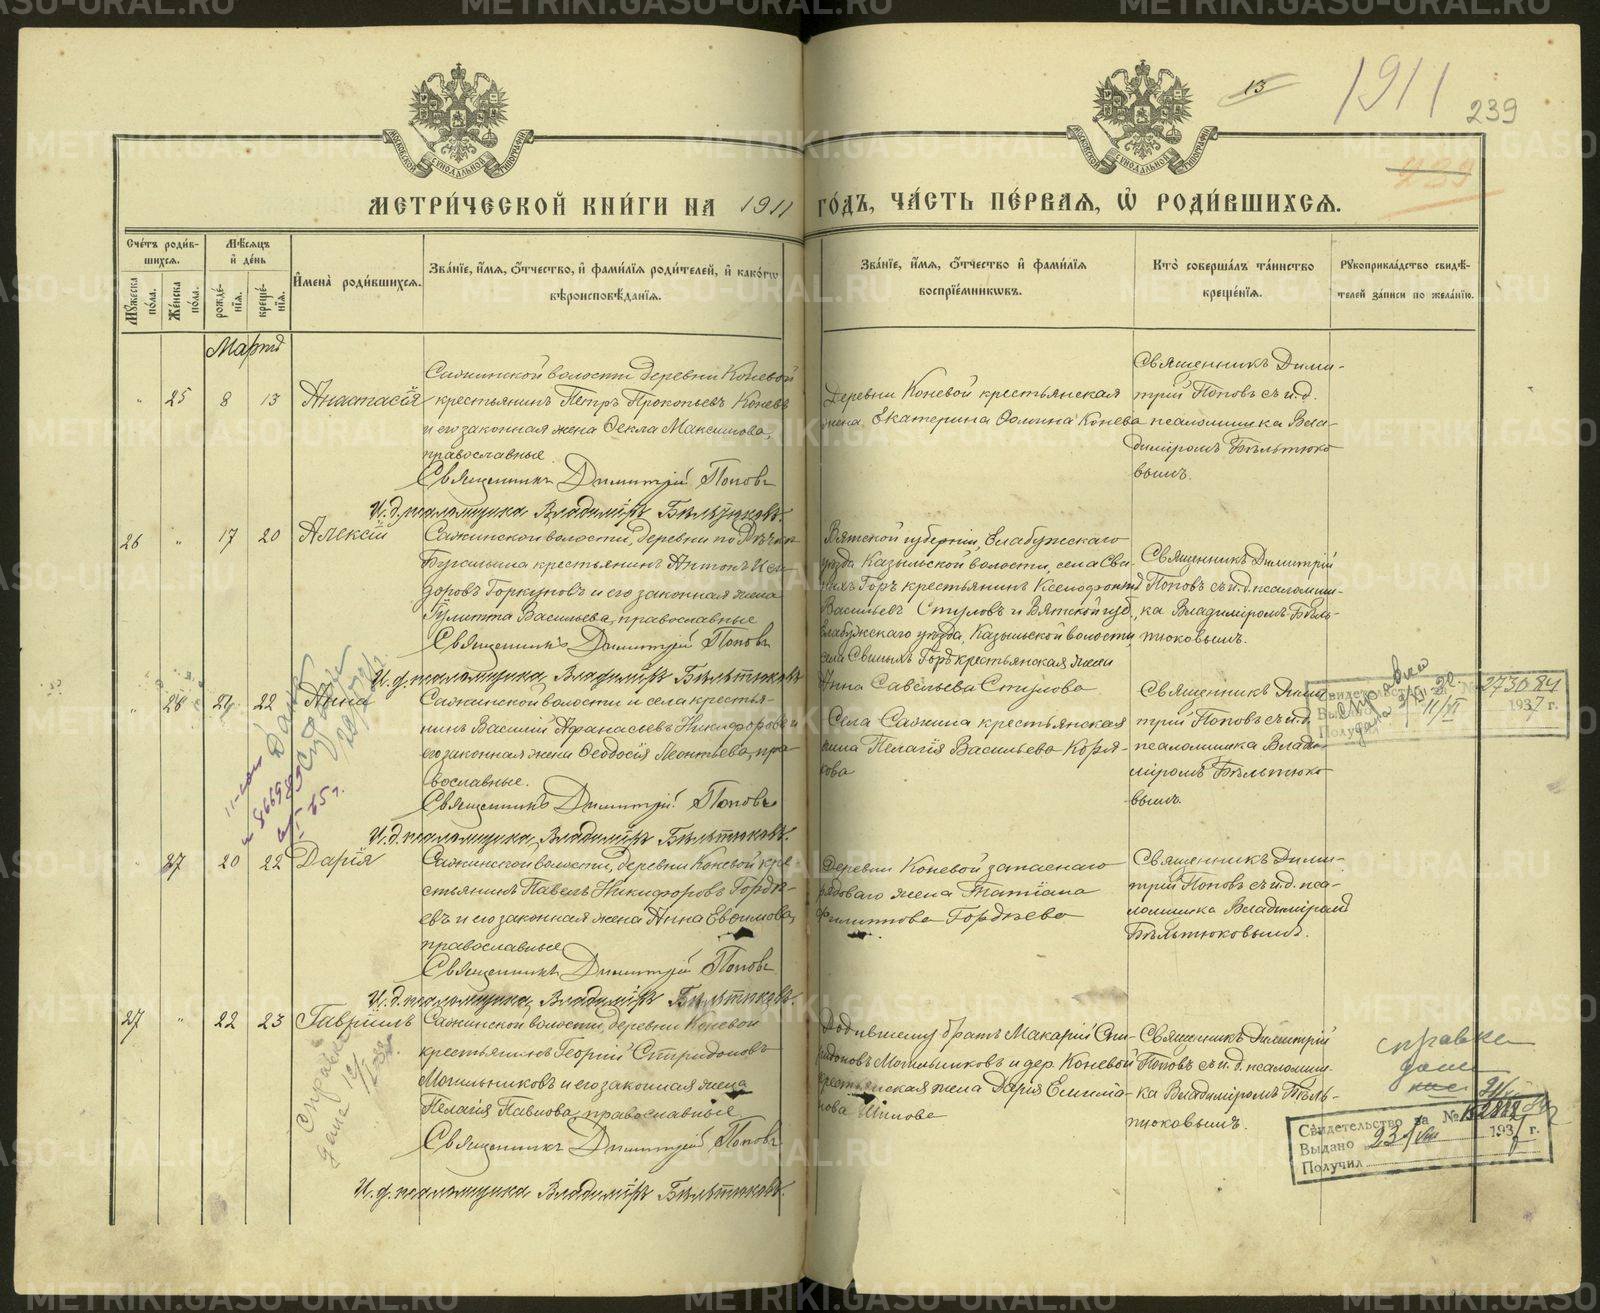 1911
239
13
239
МОСКОВСКОЙ СѴНОДАЛЬНОЙ ТИПОГРАФІИ
МОСКОВСКОЙ СѴНОДАЛЬНОЙ ТИПОГРАФІИ
МЕТРИ́ЧЕСКОЙ КНИ́ГИ НА 1911 ГО́ДЪ, ЧА́СТЬ ПЕ́РВАЯ, Ѡ҆ РОДИ́ВШИХСЯ.
Сче́тъ роди́в-
шихся.
Мꙋ́жеска по́ла.
Же́нска по́ла.
Мѣ́сяцъ
и҆ де́нь
рожде́-
нїя.
креще́-
нїя.
И҆мена̀ роди́вшихся.
Зва́нїе, и҆́мя, ѻ҆́тчество, и҆ фами́лїя роди́телей, и҆ како́гѡ
вѣроисповѣ́данїя.
Зва́нїе, и҆́мя, ѻ҆́тчество и҆ фами́лїя
воспрїе́мникѡвъ.
Кто̀ соверша́лъ та́инство
креще́нїя.
Рꙋкоприкла́дство свидѣ́-
телей за́писи по жела́нїю.
Марта
25 8 13 Анастасія
Сажинской волости деревни Коневой
крестьянинъ Петръ Прокопьевъ Коневъ
и его законная жена Ѳекла Максимова,
православные.
Священникъ Димитрій Поповъ
И.д. псаломщика Владиміръ Бѣльтюковъ.
Деревни Коневой крестьянская
жена Екатерина Ѳомина Конева
Священникъ Дими-
трій Поповъ съ и.д.
псаломщика Вла-
диміромъ Бѣльтюко
вымъ.
26 17 20 Алексій
Сажинской волости, деревни по
крестьянинъ Антонъ Иси-
доровъ Горкуновъ и его законная жена
Іулитта Васильева, православные
Священникъ Димитрій Поповъ
И.д. псаломщика Владиміръ Бѣльтюковъ
Вятской губерніи, Елабужскаго
уѣзда Казыльской волости, села Сви-
ныхъ Горъ крестьянинъ Ксенофонтъ
Васильевъ Стуловъ и Вятской губ,
Елабужскаго уѣзда, Казыльской волости,
села Свиныхъ Горъ крестьянская жена
Анна Савельева Стулова
Священникъ Димитрій
Поповъ съ и.д. псаломщи-
ка Владиміромъ Бѣль-
тюковымъ.
26 21 22 Анна
Сажинской волости и села крестья-
нинъ Василій Аѳанасьевъ Никифоровъ и
его законная жена Ѳеодосія Леонтьева, пра-
вославные.
Священникъ Димитрій Поповъ
И.д. псаломщика Владиміръ Бѣльтюковъ.
Села Сажина крестьянская
жена Пелагія Васильева Коря-
кова
Священникъ Дими
трій Поповъ съ и.д.
псаломщика Влади-
міромъ Бѣльтюко
вымъ.
Справка
дана
Свидетельство за № 273084
Выдано 11/VI 1937 г.
Получил
27 20 22 Дарія
Сажинской волости, деревни Коневой кре
стьянинъ Павелъ Никифоровъ Гордѣ-
евъ и его законная жена Анна Евѳимова,
православные
Священникъ Димитрій Поповъ
И.д. псаломщика Владиміръ Бѣльтюковъ.
Деревни Коневой запаснаго
рядоваго жена Татіана
Филиппова Гордѣева
Священникъ Дими-
трій Поповъ съ и.д. пса-
ломщика Владиміромъ
Бѣльтюковымъ.
27 22 23 Гавріилъ
Сажинской волости, деревни Коневой
крестьянинъ Георгій Спиридоновъ
Могильниковъ и его законная жена
Пелагія Павлова, православные
Священникъ Димитрій Поповъ
И.д. псаломщика Владиміръ Бѣльтюковъ.
Родившему братъ Макарій Спи-
ридоновъ Могильниковъ и дер. Коневой
крестьянская жена Дарія Емилiа-
нова Шилова
Священникъ Димитрій
Поповъ съ и.д. псаломщи-
ка Владиміромъ Бѣль-
тюковымъ.
Справка
дана
справка
дана
Свидетельство за №
Выдано 23/VIII 1937 г.
Получил
METRIKI.GASO-URAL.RU